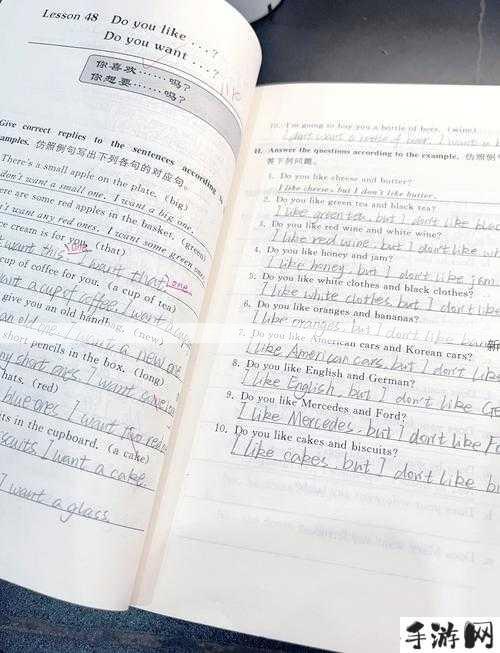 Lesson 48 Do you like ...?
Do you want ...?
你喜欢……吗?
你想要……吗?
Give correct replies to the sentences according to
examples. 仿照例句写出下列各句的对应句。
There's a small apple on the plate. (big)
don't want a small one. I want a big one.
ere are some red apples in the basket. (green)
't want any red ones. I want some green ones
ce cream is for you. (that)
want this one I want that one
cup of coffee for you. (a cup of tea)
want a cup of coffee. I want
give you an old handbag. (new)
an old one. I want a new one
short pencils in the box. (long)
ny short ones I want some
hats. (red)
blue ones I want two red
its in the cupboard. (a cake)
iscuits. I want a cake.
I want a glass
10. I'm going to buy you a bottle of beer. (wine)
I don't want a bottle of beer. I want a
II. Answer the questions according to the example. 仿照例
答下列问题。
1. Do you like cheese and butter?
I like cheese, but I don't like butter.
2. Do you like green tea and black tea?
I like green tea, but I don't like blac
3. Do you like red wine and white wine?
I like red wine, but I don't like wh
4. Do you like honey and jam?
I like honey, but I don't like jam
5. Do you like white clothes and black clothes?
I like white clothes, but I don't like
6. Do you like oranges and bananas?
I like oranges, but I don't like
7. Do you like American cars and Korean cars?
I like American cars, but I don't like
8. Do you like English and German?
I like English, but I don't like Ge
9. Do you like Mercedes and Ford?
I like Mercedes, but I don't like Fo
10. Do you like cakes and biscuits?
I like cakes, but I don't like bi
新
手游网